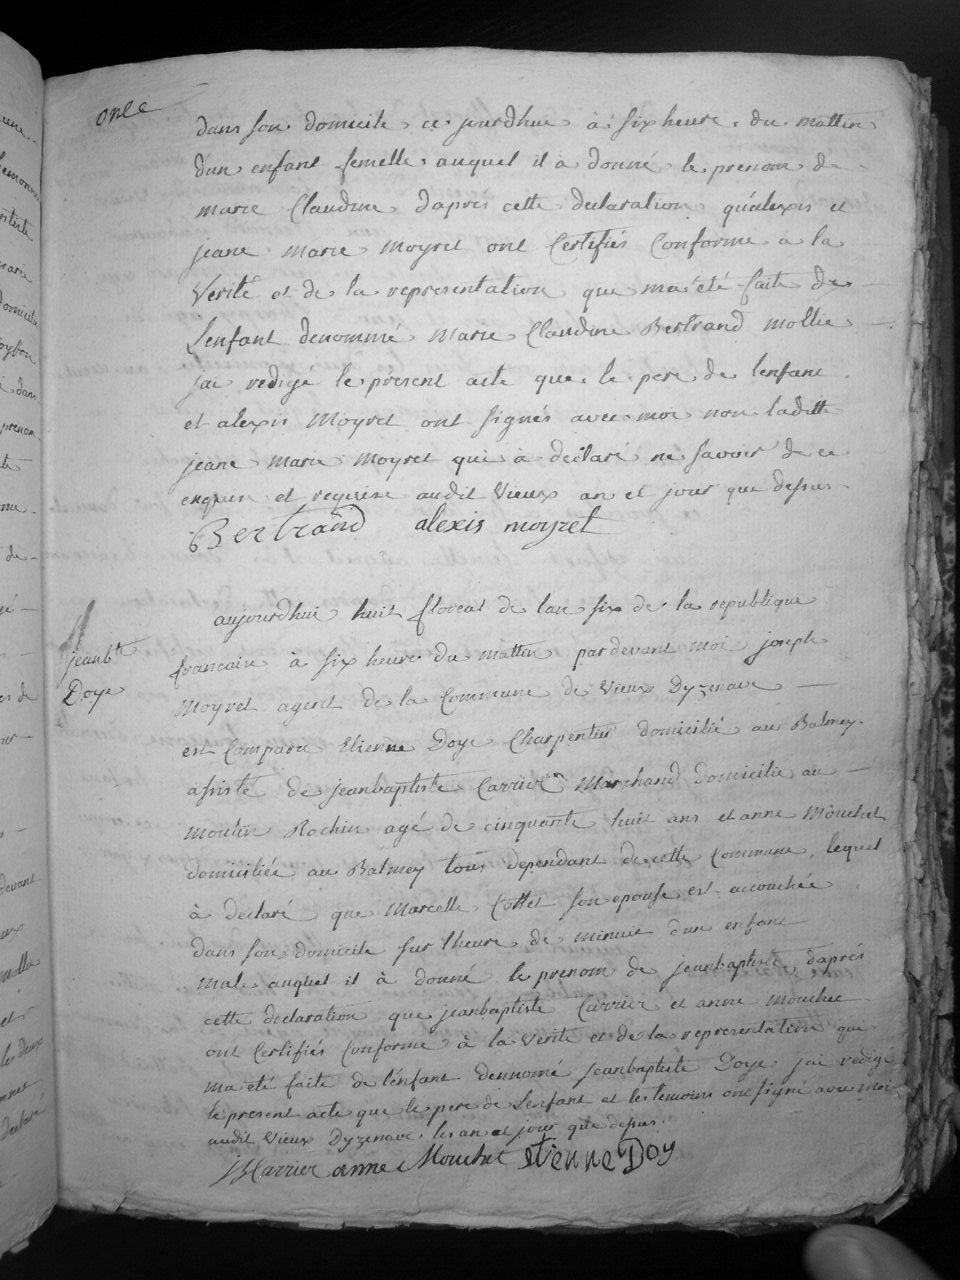 onze
dans son domicile ce jourdhui à six heure du mattin
dun enfant femelle auquel il à donné le prenom de
marie Claudine daprès cette declaration qualexis et
jeane marie moyret ont Certifiés Conforme a la
Verité et de la representation que ma été faite de
Lenfant denommé marie Claudine Bertrand mollie
jai redigé le present acte que le pere de lenfant
et alexis Moyret ont signés avec moi non laditte
jeane marie moyret qui à déclaré ne savoir de ce
enquise et requise audit Vieux an et jour que dessus
Bertrand alexis moyret
aujourdhui huit floreal de lan six de la republique
francaise à six heure du mattin pardevant moi joseph
Moyret agent de la Commune de Vieux Dyzenave
est Comparu Etienne Doye Charpentier domicilié aux Balmey
assisté de jeanbaptiste Carrier Marchand domicilié au
moulin Rochin agé de cinquante huit ans et anne Mouchet
domiciliée au Balmey tous dependant de cette Commune, lequel
à declaré que Marcelle Collet son epouse est accouchée
dans son domicile sur lheure de minuit dun enfant
mal auquel il à donné le prenom de jeanbaptiste daprés
cette declaration que jeanbaptiste Carrier et anne Mouchet
ont Certifiés Conforme à la Verité et de la representation que
ma été faite de lénfant dennomé jeanbaptiste Doye jai redigé
le present acte que le pere de Lenfant et les temoins ont signé avec moi
audit Vieux Dyzenave les an et jour que dessus.
jeanbte
Doye
JBCarrier anne Mouchet etienne Doy